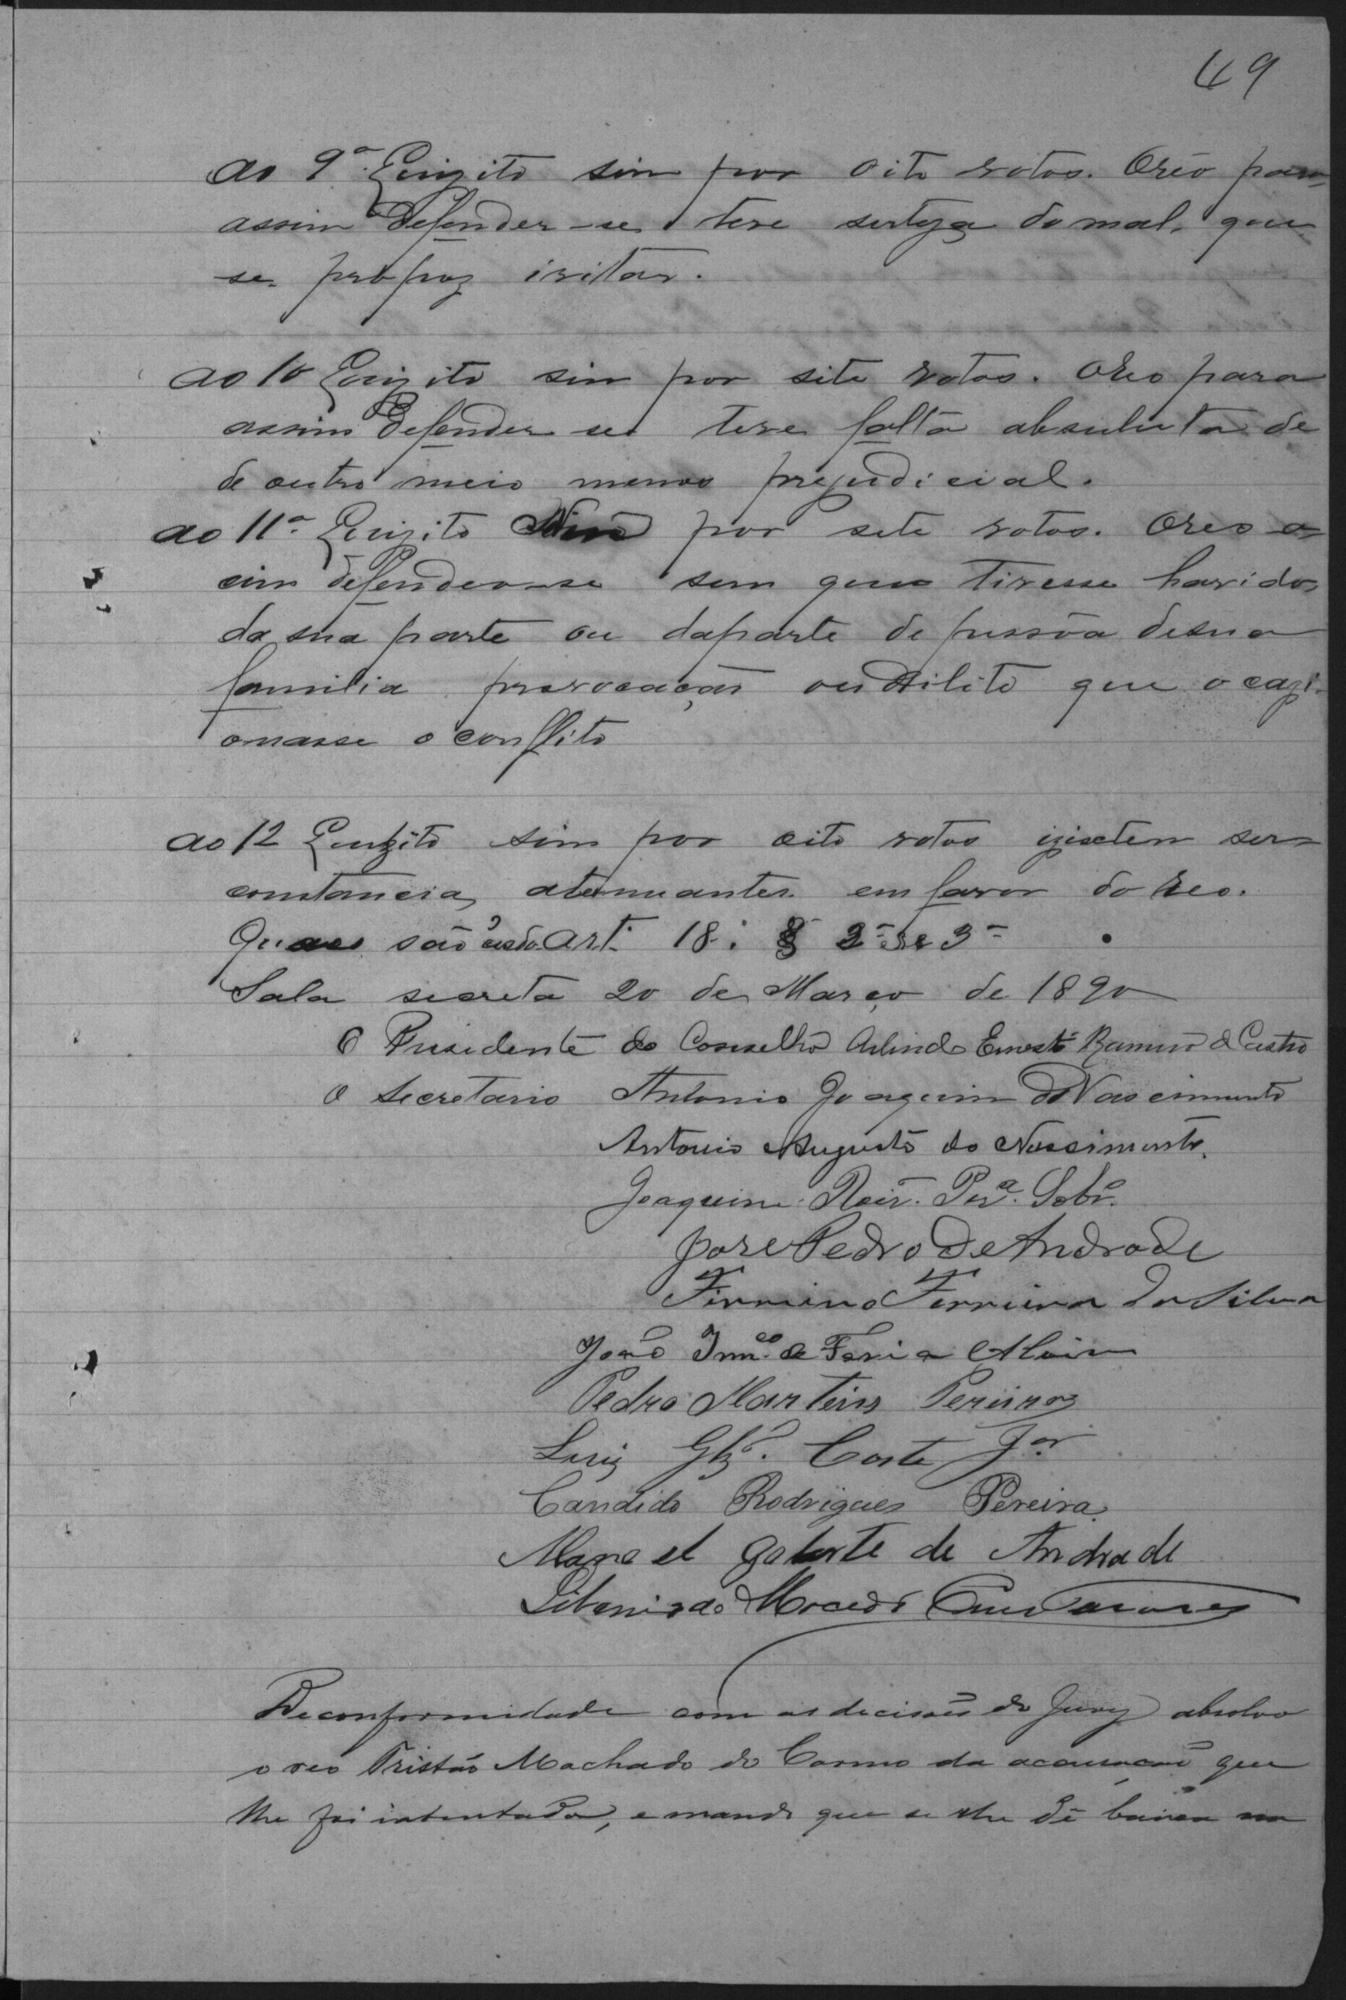 49
ao 9º Quizito sim por oito votos. Oréo para
assim defender-se teve serteza do mal, que
se propoz ivitar.
ao 10 Quizito sim por sete votos. Oreo para
assim defender se teve falta absuluta de
de outro meio menos prejudicial.
ao 11º Quizito por sete votos. Oreo a
cim defendeo-se sem que tivesse havido
da sua parte ou daparte de pussôa desua
familia provocação ou dilito que ocazi
onasse o conflito
ao 12 Quizito sim por oito votos izistem ser
constancia atenuantes em favor do Reo.
Quaes são Art. 18. § 2º e 3º
Sala secreta 20 de Março de 1890
O Prisidente do Conselho Arlindo Ernesto Ramiro de Castro
O Secretario Antonio Joaquim do Nascimento
Antonio Augusto do Nascimento.
Joaquim Per.ª Sobr.º
Jose Pedro De Andrade
Firmino Ferreira da Silva
João de Faria
Pedro Martins Pereira
Luiz Glz. Costa Jor
Candido Rodrigues Pereira
Manoel de Andrade
Macedo
Deconformidade com as decisões do Jury absolvo
o reo Tristão Machado do Carmo da accusação que
lhe foi intentada, e mando que se lhe dê baixa no